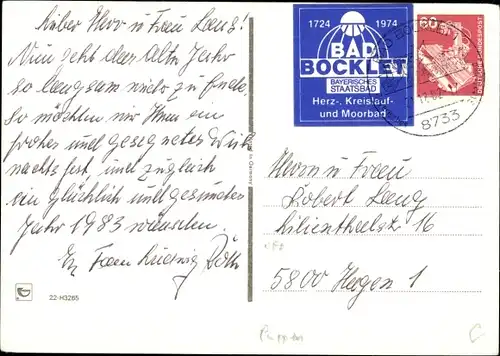 Lieber Herr u Frau Lang!
Nun geht das alte Jahr
so langsam auch zu Ende.
So möchten wir Ihnen ein
frohes und gesegnetes Weih
nachtsfest, und zugleich
ein glücklich und gesundes
Jahr 1983 wünschen.
Frau Ludwig Röth
22-H3265
1724 1974
BAD
BOCKLET
BAYERISCHES
STAATSBAD
Herz-, Kreislauf-
und Moorbad
60
DEUTSCHE BUNDESPOST
8733
Herrn u Frau
Robert Lang
Lilienthalstr 16
5800 Hagen 1